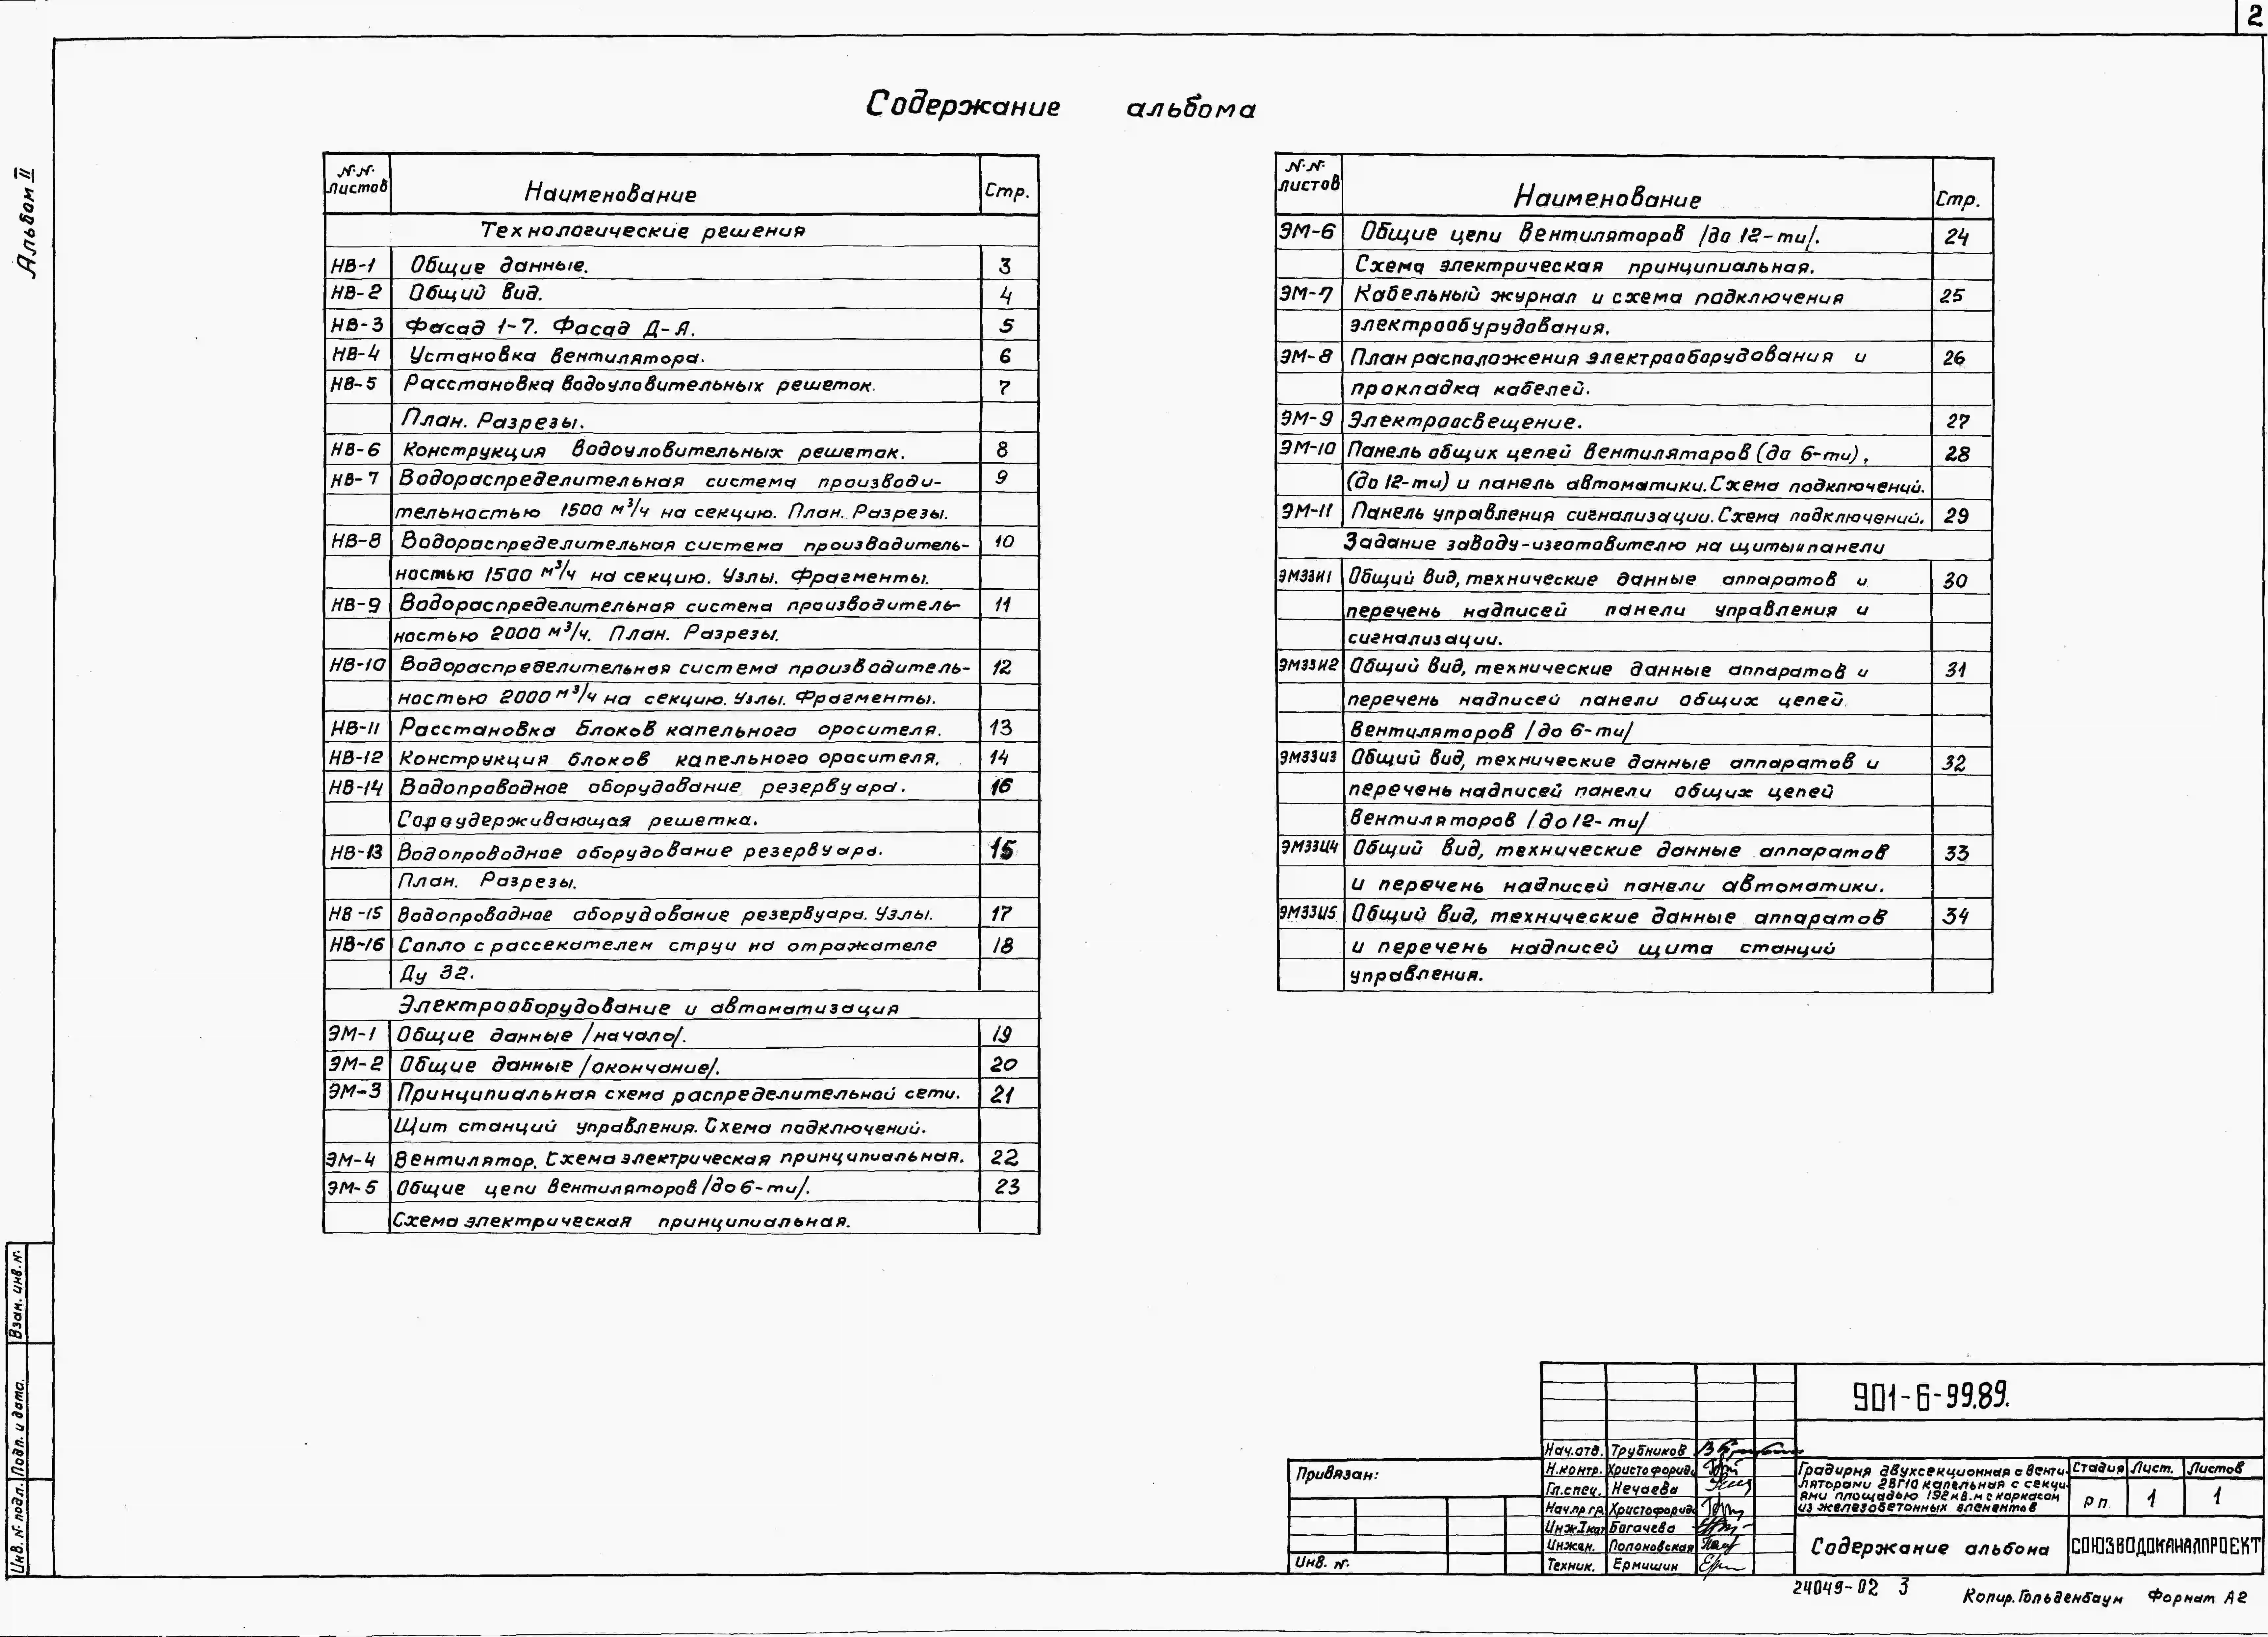 2
Альбом II
Содержание альбома
№№ листов Наименование Стр.
Технологические решения
НВ-1 Общие данные. 3
НВ-2 Общий вид. 4
НВ-3 Фасад 1-7. Фасад Д-А. 5
НВ-4 Установка вентилятора. 6
НВ-5 Расстановка водоуловительных решеток. 7
План. Разрезы.
НВ-6 Конструкция водоуловительных решеток. 8
НВ-7 Водораспределительная система производи- 9
тельностью 1500 м³/ч на секцию. План. Разрезы.
НВ-8 Водораспределительная система производитель- 10
ностью 1500 м³/ч на секцию. Узлы. Фрагменты.
НВ-9 Водораспределительная система производитель- 11
ностью 2000 м³/ч. План. Разрезы.
НВ-10 Водораспределительная система производитель- 12
ностью 2000 м³/ч на секцию. Узлы. Фрагменты.
НВ-11 Расстановка блоков капельного оросителя. 13
НВ-12 Конструкция блоков капельного оросителя. 14
НВ-14 Водопроводное оборудование резервуара. 16
Сороудерживающая решетка.
НВ-13 Водопроводное оборудование резервуара. 15
План. Разрезы.
НВ-15 Водопроводное оборудование резервуара. Узлы. 17
НВ-16 Сопло с рассекателем струи на отражателе 18
Ду 32.
Электрооборудование и автоматизация
ЭМ-1 Общие данные /начало/. 19
ЭМ-2 Общие данные /окончание/. 20
ЭМ-3 Принципиальная схема распределительной сети. 21
Щит станций управления. Схема подключений.
ЭМ-4 Вентилятор. Схема электрическая принципиальная. 22
ЭМ-5 Общие цепи вентиляторов /до 6-ти/. 23
Схема электрическая принципиальная.
№№ листов Наименование Стр.
ЭМ-6 Общие цепи вентиляторов /до 12-ти/. 24
Схема электрическая принципиальная.
ЭМ-7 Кабельный журнал и схема подключения 25
электрообурудования.
ЭМ-8 План расположения электрооборудования и 26
прокладка кабелей.
ЭМ-9 Электроосвещение. 27
ЭМ-10 Панель общих цепей вентиляторов (до 6-ти), 28
(до 12-ти) и панель автоматики. Схема подключений.
ЭМ-11 Панель управления сигнализации. Схема подключений. 29
Задание заводу-изготовителю на щиты и панели
ЭМЗЗИ1 Общий вид, технические данные аппаратов и 30
перечень надписей панели управления и
сигнализации.
ЭМЗЗИ2 Общий вид, технические данные аппаратов и 31
перечень надписей панели общих цепей
вентиляторов /до 6-ти/
ЭМЗЗИ3 Общий вид, технические данные аппаратов и 32
перечень надписей панели общих цепей
вентиляторов /до 12-ти/
ЭМЗЗИ4 Общий вид, технические данные аппаратов 33
и перечень надписей панели автоматики.
ЭМЗЗИ5 Общий вид, технические данные аппаратов 34
и перечень надписей щита станций
управления.
Взам. инв. №
Подп. и дата.
Инв. № подл.
Привязан:
Инв. №
901-6-99.89.
Нач.отд. Трубников
Н.контр. Христофориди
Гл.спец. Нечаева
Нач.пр гр. Христофориди
Инж.Iкат Богачева
Инжен. Полоновская
Техник. Ермишин
Градирня двухсекционная с венти-
ляторами 2ВГ10 капельная с секци-
ями площадью 192 кв.м с каркасом
из железобетонных элементов
Стадия Лист. Листов
рп 1 1
Содержание альбома
СОЮЗВОДОКАНАЛПРОЕКТ
24049-02 3
Копир. Гольденбаум Формат А2